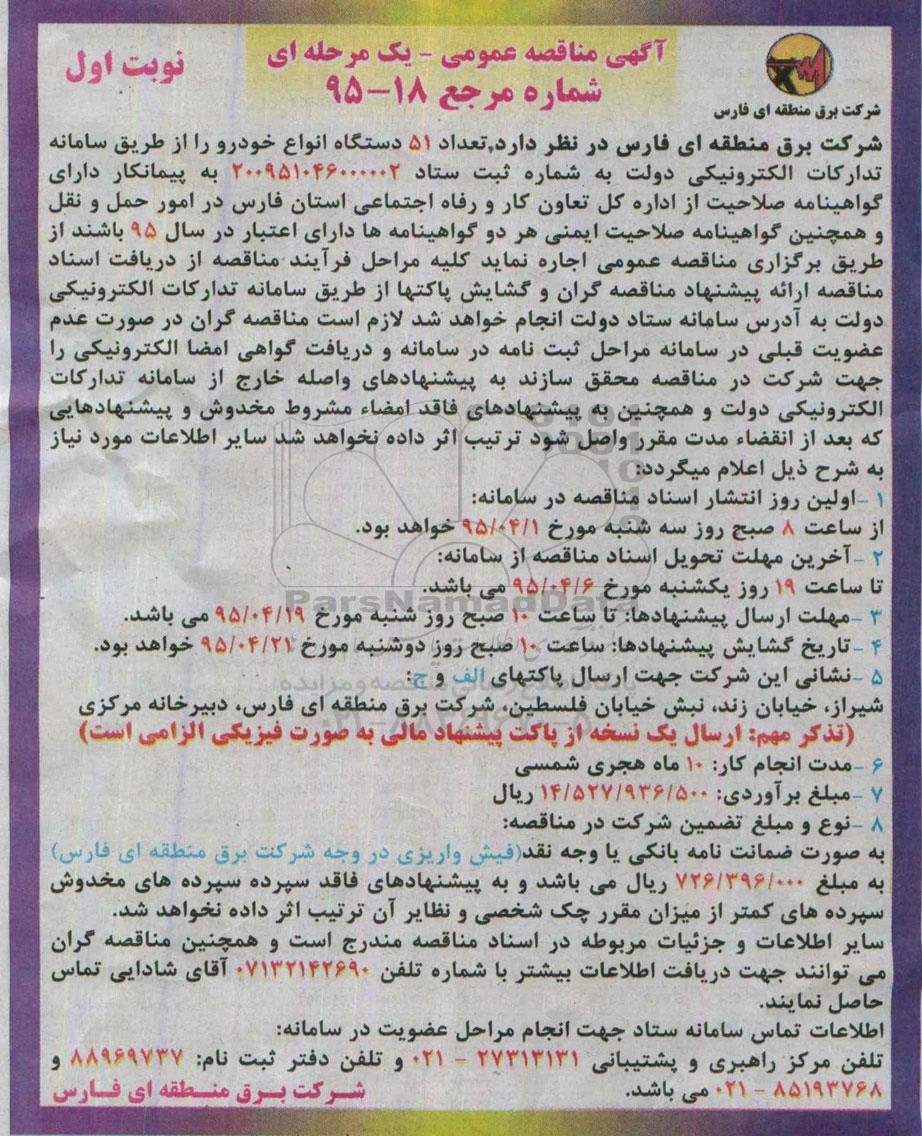 آگهی مناقصه عمومی - یک مرحله ای
شماره مرجع ۱۸-۹۵
نوبت اول
شرکت برق منطقه ای فارس
شرکت برق منطقه ای فارس در نظر دارد,تعداد ۵۱ دستگاه انواع خودرو را از طریق سامانه
تدارکات الکترونیکی دولت به شماره ثبت ستاد ۲۰۰۹۵۱۰۴۶۰۰۰۰۰۲ به پیمانکار دارای
گواهینامه صلاحیت از اداره کل تعاون کار و رفاه اجتماعی استان فارس در امور حمل و نقل
و همچنین گواهینامه صلاحیت ایمنی هر دو گواهینامه ها دارای اعتبار در سال ۹۵ باشند از
طریق برگزاری مناقصه عمومی اجاره نماید کلیه مراحل فرآیند مناقصه از دریافت اسناد
مناقصه ارائه پیشنهاد مناقصه گران و گشایش پاکتها از طریق سامانه تدارکات الکترونیکی
دولت به آدرس سامانه ستاد دولت انجام خواهد شد لازم است مناقصه گران در صورت عدم
عضویت قبلی در سامانه مراحل ثبت نامه در سامانه و دریافت گواهی امضا الکترونیکی را
جهت شرکت در مناقصه محقق سازند به پیشنهادهای واصله خارج از سامانه تدارکات
الکترونیکی دولت و همچنین به پیشنهادهای فاقد امضاء مشروط مخدوش و پیشنهادهایی
که بعد از انقضاء مدت مقرر واصل شود ترتیب اثر داده نخواهد شد سایر اطلاعات مورد نیاز
به شرح ذیل اعلام میگردد:
۱ -اولین روز انتشار اسناد مناقصه در سامانه:
از ساعت ۸ صبح روز سه شنبه مورخ ۹۵/۰۴/۱ خواهد بود.
۲ -آخرین مهلت تحویل اسناد مناقصه از سامانه:
تا ساعت ۱۹ روز یکشنبه مورخ ۹۵/۰۴/۶ می باشد.
۳ -مهلت ارسال پیشنهادها: تا ساعت ۱۰ صبح روز شنبه مورخ ۹۵/۰۴/۱۹ می باشد.
۴ -تاریخ گشایش پیشنهادها: ساعت ۱۰ صبح روز دوشنبه مورخ ۹۵/۰۴/۲۱ خواهد بود.
۵ -نشانی این شرکت جهت ارسال پاکتهای الف و ج:
شیراز، خیابان زند، نبش خیابان فلسطین، شرکت برق منطقه ای فارس، دبیرخانه مرکزی
(تذکر مهم: ارسال یک نسخه از پاکت پیشنهاد مالی به صورت فیزیکی الزامی است)
۶ -مدت انجام کار: ۱۰ ماه هجری شمسی
۷ -مبلغ برآوردی: ۱۴/۵۲۷/۹۳۶/۵۰۰ ریال
۸ -نوع و مبلغ تضمین شرکت در مناقصه:
به صورت ضمانت نامه بانکی یا وجه نقد(فیش واریزی در وجه شرکت برق منطقه ای فارس)
به مبلغ ۷۲۶/۳۹۶/۰۰۰ ریال می باشد و به پیشنهادهای فاقد سپرده سپرده های مخدوش
سپرده های کمتر از میزان مقرر چک شخصی و نظایر آن ترتیب اثر داده نخواهد شد.
سایر اطلاعات و جزئیات مربوطه در اسناد مناقصه مندرج است و همچنین مناقصه گران
می توانند جهت دریافت اطلاعات بیشتر با شماره تلفن ۰۷۱۳۲۱۴۲۶۹۰ آقای شادایی تماس
حاصل نمایند.
اطلاعات تماس سامانه ستاد جهت انجام مراحل عضویت در سامانه:
تلفن مرکز راهبری و پشتیبانی ۲۷۳۱۳۱۳۱ - ۰۲۱ و تلفن دفتر ثبت نام: ۸۸۹۶۹۷۳۷ و
۸۵۱۹۳۷۶۸ - ۰۲۱ می باشد.
شرکت برق منطقه ای فارس
ParsNamadData